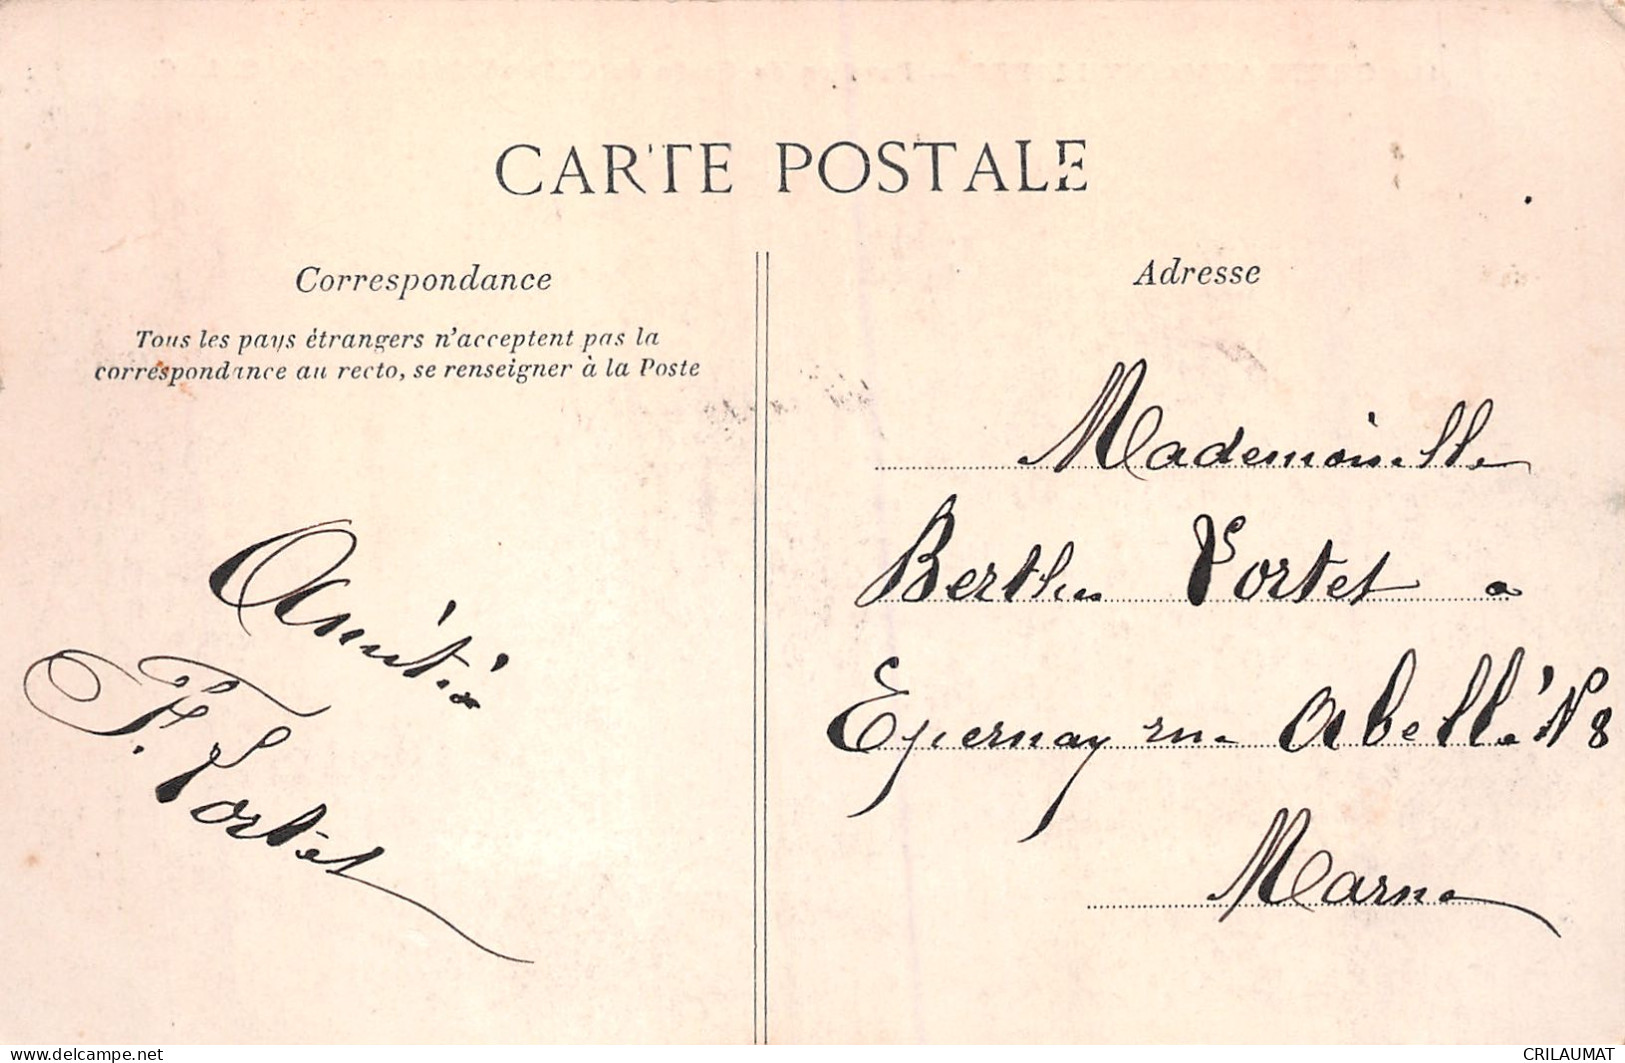 CARTE POSTALE
Correspondance
Tous les pays étrangers n'acceptent pas la
correspondance au recto, se renseigner à la Poste
Amitié
F. Portet
Adresse
Mademoiselle
Berthe Portet a
Epernay rue Abellé N 8
Marne
www.delcampe.net
CRILAUMAT